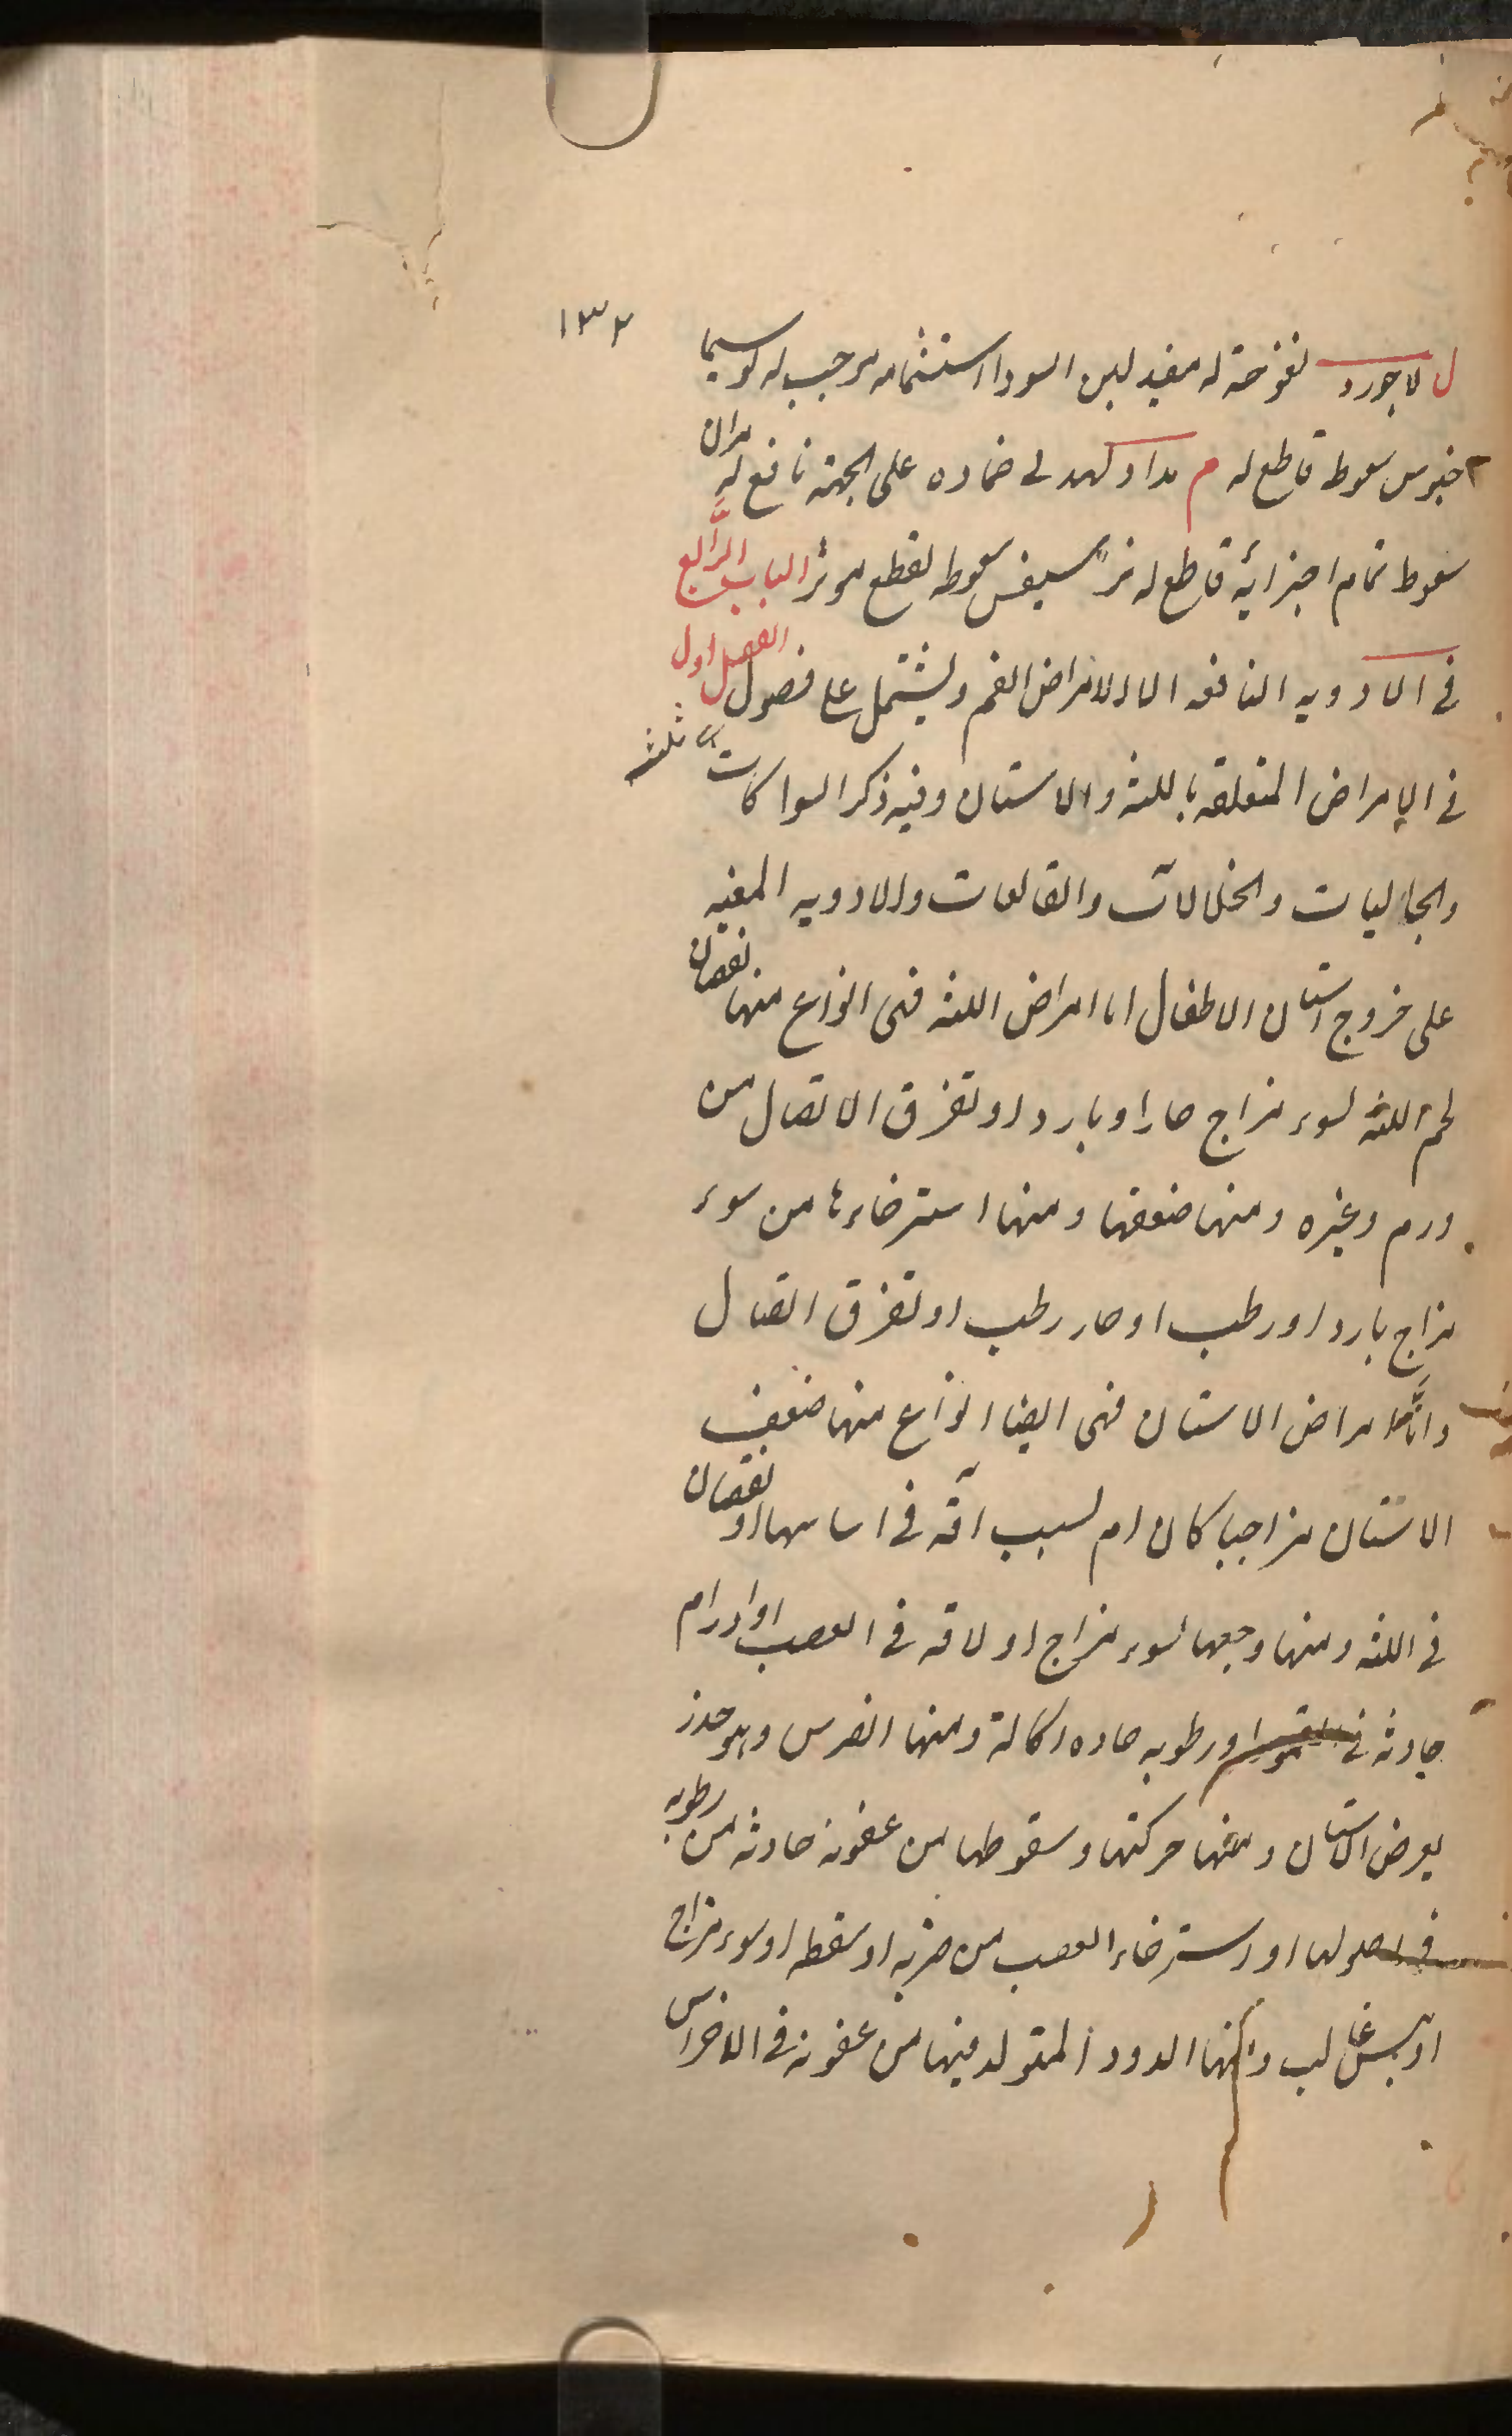 ١٣٢
ل لاجورد نفوخة له مفيد لبن السودا استشمامه موجب له لوسيما
خبوس سعوط قاطع له م مداد كهد لى ضماده على الجبهة نافع له مران
سعوط تمام اجزائه قاطع له سعوطه لقطع موثر الباب الرابع
فى الادويه النافعه لامراض الفم ويشتمل على فصول ثلثه الفصل اول
فى الامراض المتعلقه باللثه والاسنان وفيه ذكر السواكات
والجاليات والخلالات والقالعات والادويه المعينه
على خروج اسنان الاطفال اما امراض اللثه فهى انواع منها نقصان
لحم اللثه لسوء مزاج حار او بارد او تفرق الاتصال من
ورم وغيره ومنها ضعفها ومنها استرخاءها من سوء
مزاج بارد او رطب او حار رطب او تفرق اتصال
واما امراض الاسنان فهى ايضا انواع منها ضعف
الاسنان مزاجيا كان ام لسبب آفه فى اساسها او نقصان
فى اللثه ومنها وجعها لسوء مزاج او لافه فى العصب او اورام
حادثه فى او رطوبه حاده اكالة ومنها الضرس وهو خدر
يعرض الاسنان ومنها حركتها وسقوطها من عفونه حادثه من رطوبه
فى اصولها او استرخاء العصب من ضربه او سقطه او سوء مزاج
او يبس غالب ومنها الدود المتولد فيها من عفونه فى الاضراس